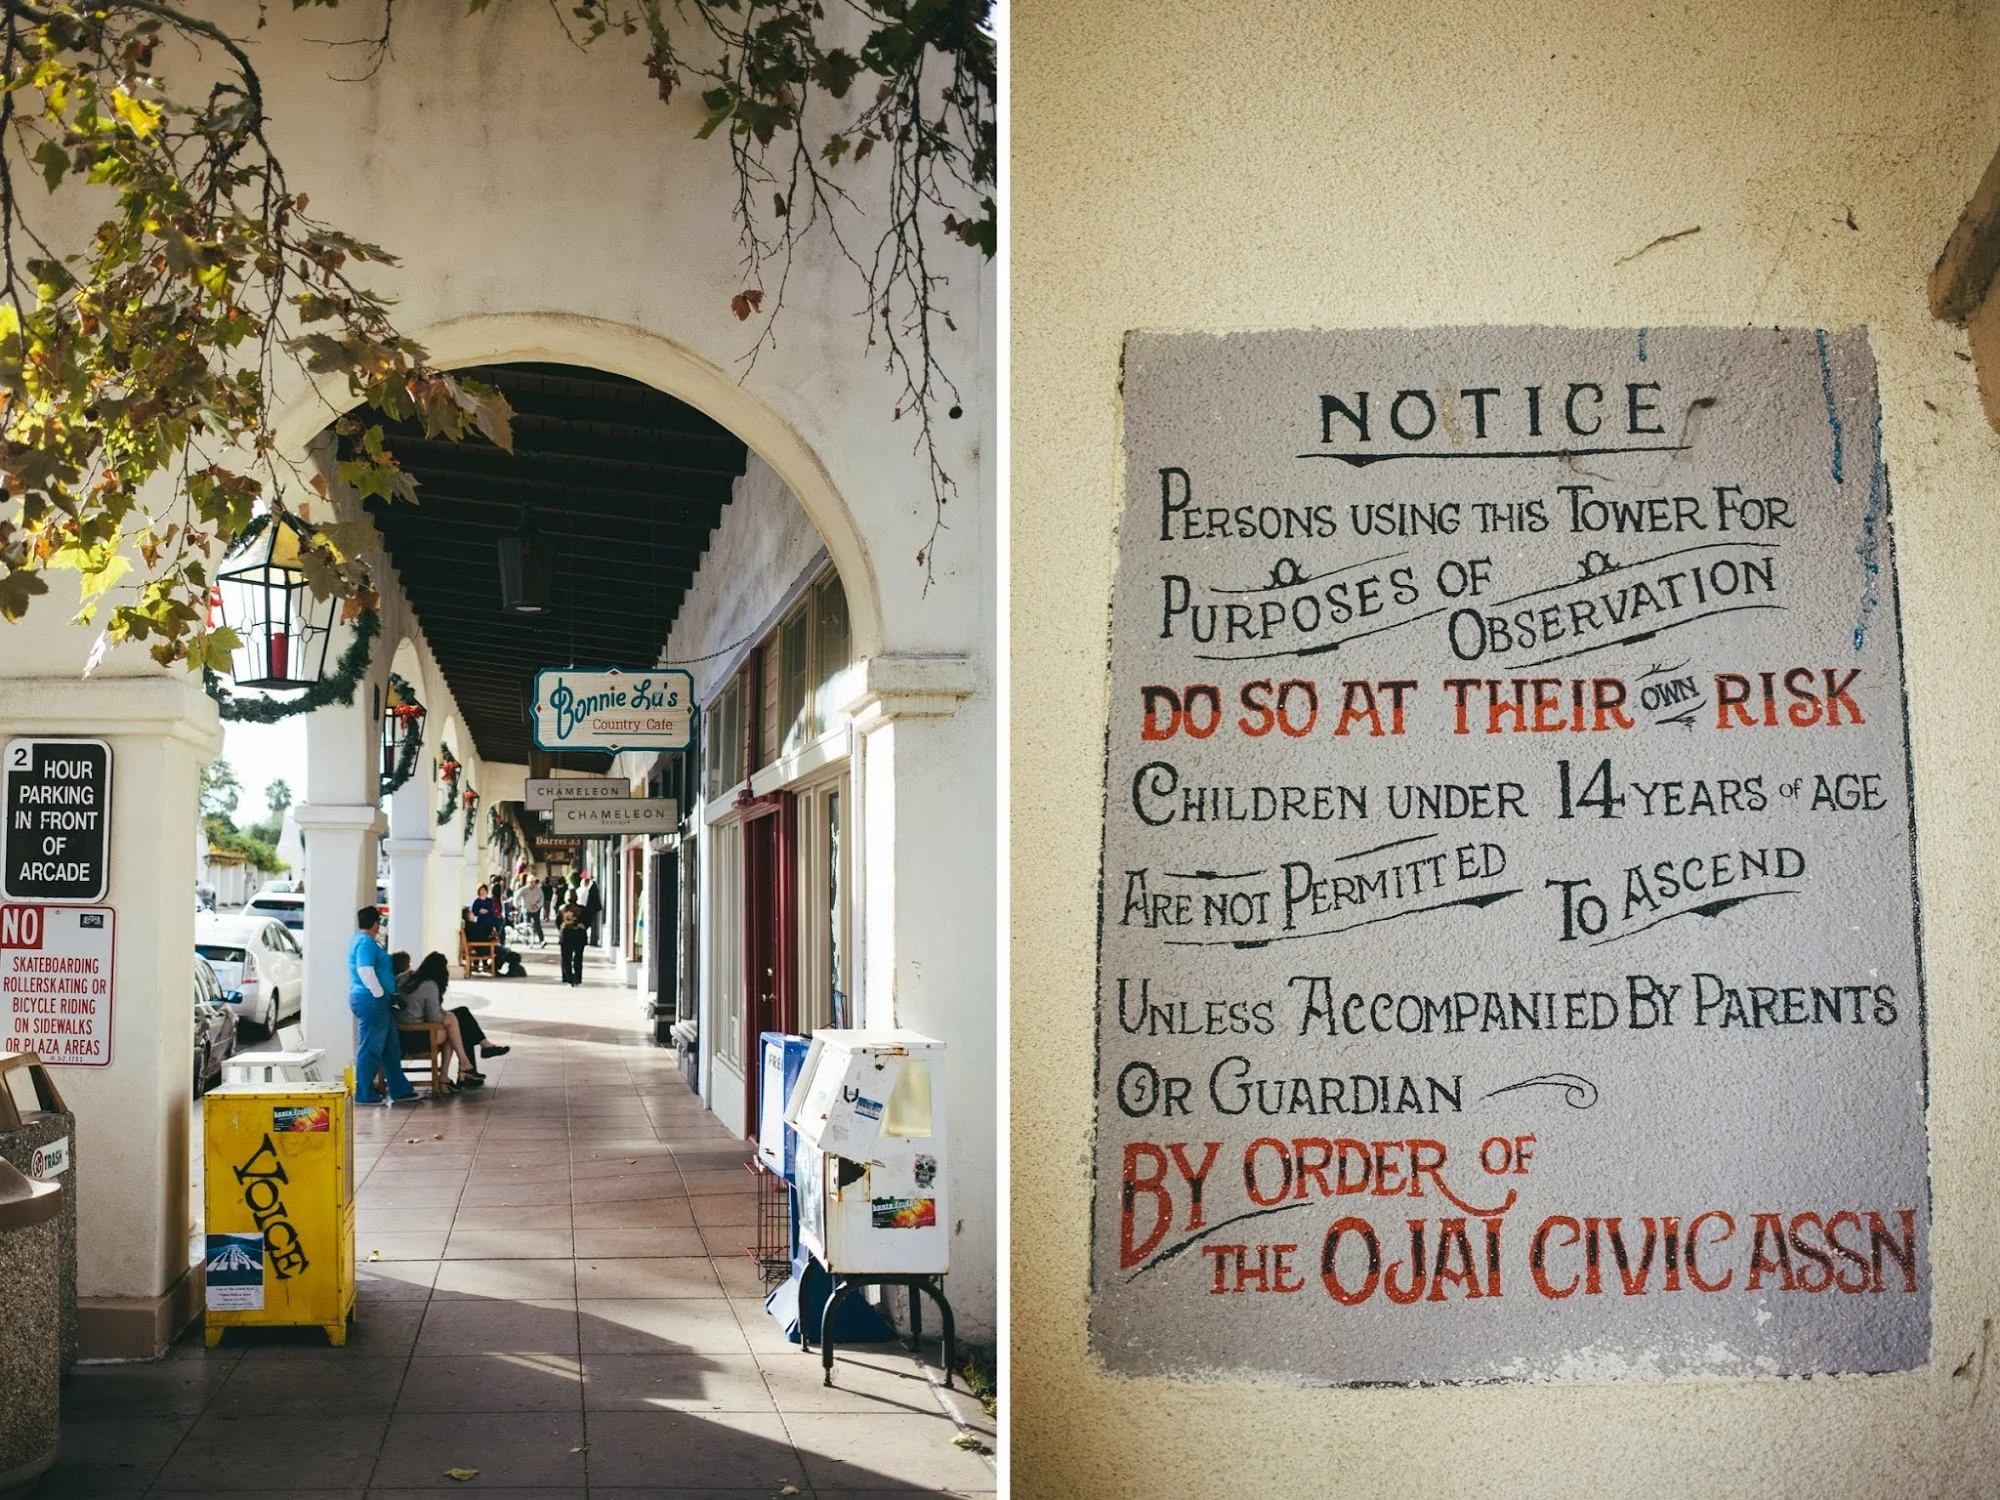 Bonnie Lu's
Country Cafe
CHAMELEON
CHAMELEON
Boutique
Barrel 33
2 HOUR
PARKING
IN FRONT
OF
ARCADE
NO
SKATEBOARDING
ROLLERSKATING OR
BICYCLE RIDING
ON SIDEWALKS
OR PLAZA AREAS
TRASH
VOICE
FREE
NOTICE
PERSONS USING THIS TOWER FOR
PURPOSES OF OBSERVATION
DO SO AT THEIR OWN RISK
CHILDREN UNDER 14 YEARS of AGE
ARE NOT PERMITTED TO ASCEND
UNLESS ACCOMPANIED BY PARENTS
OR GUARDIAN
BY ORDER OF
THE OJAI CIVIC ASSN